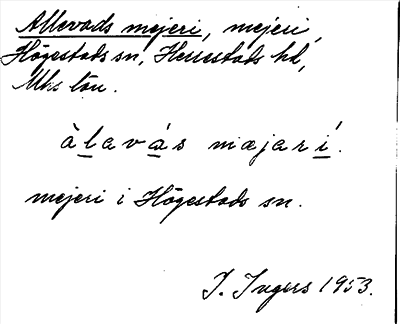 Allevads mejeri, mejeri,
Högestads sn, Herrestads hd,
Mhs län.
àlavás mæjarí.
mejeri i Högestads sn.
I. Ingers 1953.